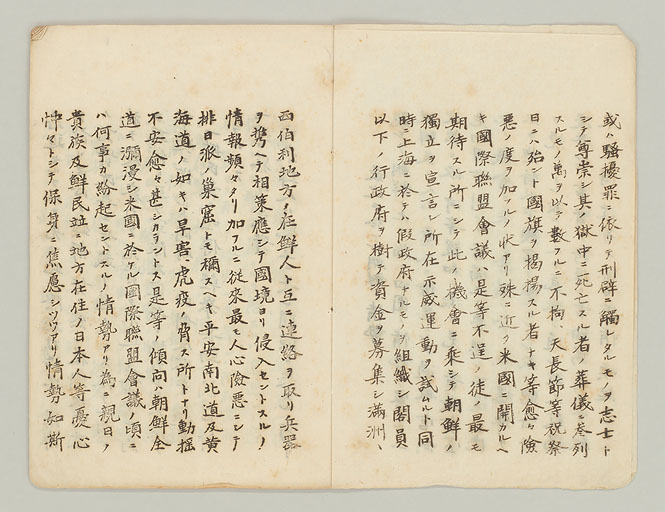 或ハ騷擾罪ニ依リテ刑辟ニ觸レタルモノヲ志士ト
シテ尊崇シ其ノ獄中ニ死亡スル者ノ葬儀ニ參列
スルモノ萬ヲ以テ數フルニ不拘天長節等祝祭
日ニハ殆ント國旗ヲ揭揚スル者ナキ等愈々險
惡ノ度ヲ加フルノ狀アリ殊ニ近ク米國ニ開カルヘ
キ國際聯盟會議ハ是等不逞ノ徒ノ最モ
期待スル所ニシテ此ノ機會ニ乘シテ朝鮮ノ
獨立ヲ宣言シ所在示威運動ヲ試ムルト同
時ニ上海ニ於テハ假政府ナルモノヲ組織シ閣員
以下ノ行政府ヲ樹テ資金ヲ募集シ滿洲、
西伯利地方ノ在鮮人ト互ニ連絡ヲ取リ兵器
ヲ携ヘテ相策應シテ國境ヨリ侵入セントスルノ
情報頻々タリ加フルニ從來最モ人心險惡ニシテ
排日派ノ巢窟トモ稱スヘキ平安南北道及黃
海道ノ如キハ旱害、虎疫ノ脅ス所トナリ動搖
不安愈々甚シカラントス是等ノ傾向ハ朝鮮全
道ニ瀰漫シ米國ニ於ケル國際聯盟會議ノ頃ニ
ハ何事カ紛起セントスルノ情勢アリ為ニ親日ノ
貴族及鮮民竝ニ地方在住ノ日本人等憂心
忡々トシテ保身ニ焦慮シツツアリ情勢如斯